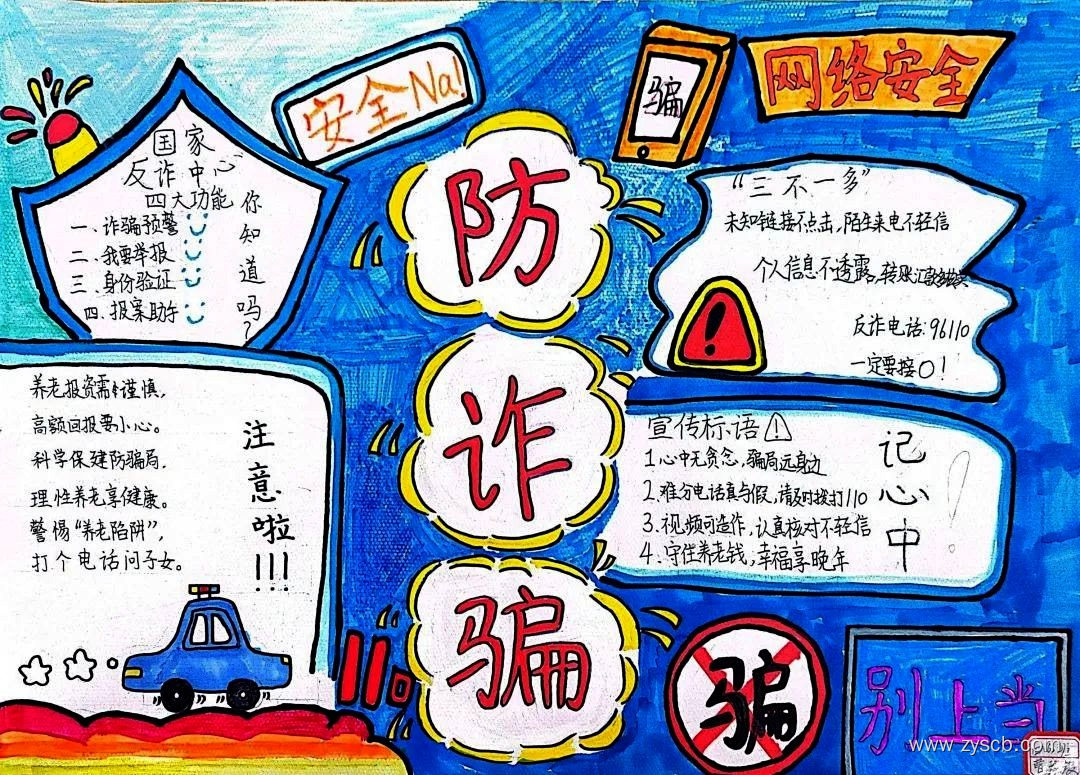 安全Na!
骗
网络安全
国家
反诈中心
四大功能
一、诈骗预警
二、我要举报
三、身份验证
四、报案助手
你知道吗?
防
诈
骗
“三不一多”
未知链接不点击,陌生来电不轻信
个人信息不透露,转账汇款多核实
反诈电话:96110
一定要接O!
养老投资需谨慎,
高额回报要小心。
科学保建防骗局,
理性养老享健康。
警惕“养老陷阱”,
打个电话问子女。
注意啦!!!
宣传标语!
1.心中无贪念,骗局远身边
2.难分电话真与假,请及时拨打110
3.视频可造作,认真核对不轻信
4.守住养老钱,幸福享晚年
记心中!
110
骗
别上当
www.zyscb.com